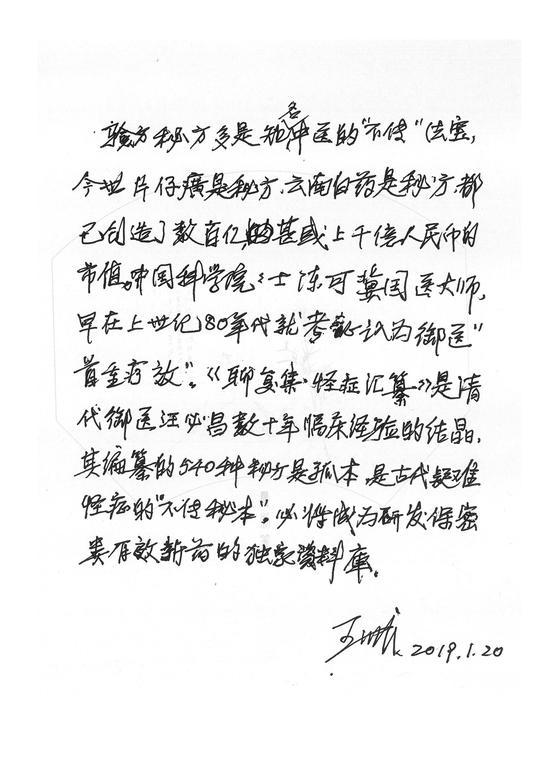 验方秘方多是知名中医的"不传"法宝,
今世片仔癀是秘方、云南白药是秘方,都
已创造了数百亿的甚或上千亿人民币的
市值。中国科学院院士陈可冀国医大师,
早在上世纪80年代就考证认为御医"
首重疗效"。《聊复集·怪症汇纂》是清
代御医汪必昌数十年临床经验的结晶,
其编纂的540种秘方是孤本,是古代疑难
怪症的"不传秘本"。必将成为研发保密
类有效新药的独家资料库。
2019.1.20